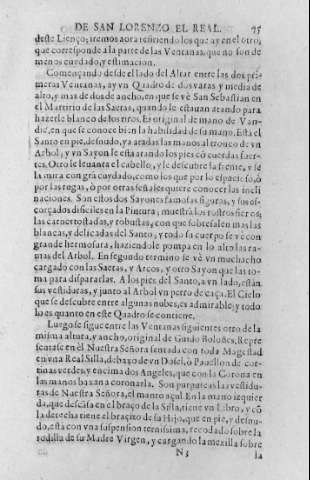 DE SAN LORENZO EL REAL. 75
deste Lienço, iremos aora refiriendo los que ay en el otro,
que corresponde a la parte de las Ventanas, que no son de
menos cuydado, y estimacion.
Començando desde el lado del Altar entre las dos pri-
meras Ventanas, ay vn Quadro de dos varas y media de
alto, y mas de dos de ancho, en que se vè San Sebastian en
el Martirio de las Saetas, quando le estauan atando para
hazerle blanco de los tiros. Es original de mano de Van-
dic, en que se conoce bien la habilidad de su mano. Està el
Santo en pie, desnudo, ya atadas las manos al tronco de vn
Arbol, y vn Sayon le està atando los pies cõ cuerdas fuer-
tes. Otro le leuanta el cabello, y le descubre la frente, y se
la mira con grã cuydado, como los que por lo espacioso, ò
por las rugas, ò por otras señas quiere conocer las incli
naciones. Son estos dos Sayones famosas figuras, y sus es-
corçados dificiles en la Pintura, muestrã los rostros fieros,
las carnes tostadas, y robustas, con que sobresalen mas las
blancas, y delicadas del Santo, y todo su cuerpo se vè con
grande hermosura, haziendole pompa en lo alto las ra-
mas del Arbol. En segundo termino se vè vn muchacho
cargado con las Saetas, y Arcos, y otro Sayon que las to-
ma para dispararlas. A los pies del Santo, a vn lado, estàn
sus vestiduras, y junto al Arbol vn perro de caça. El Cielo
que se descubre entre algunas nubes, es admirable, y todo
lo es quanto en este Quadro se contiene.
Luego se sigue entre las Ventanas siguientes otro de la
misma altura, y ancho, original de Guido Boloñes, Repre
sentase en èl Nuestra Señora sentada con toda Magestad
en vna Real Silla, debaxo de vn Dosel, ò Pauellon de cor-
tinas verdes, y encima dos Angeles, que con la Corona en
las manos baxan a coronarla. Son purpureas las vestidu-
ras de Nuestra Señora, el manto açul. En la mano izquier
da, que descãsa en el braço de la Silla, tiene vn Libro, y cõ
la derecha tiene el bracito de su Hijo, que en pie, y desnu-
do, està con vna suspension ternissima, recodado sobre la
rodilla de su Madre Virgen, y cargando la mexilla sobre
N 3 la